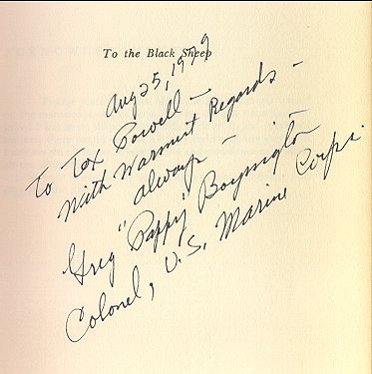 To the Black Sheep
Aug 25, 1979
To Tex Powell —
With Warmest Regards —
always —
Greg "Pappy" Boyington
Colonel, U.S. Marine Corps.